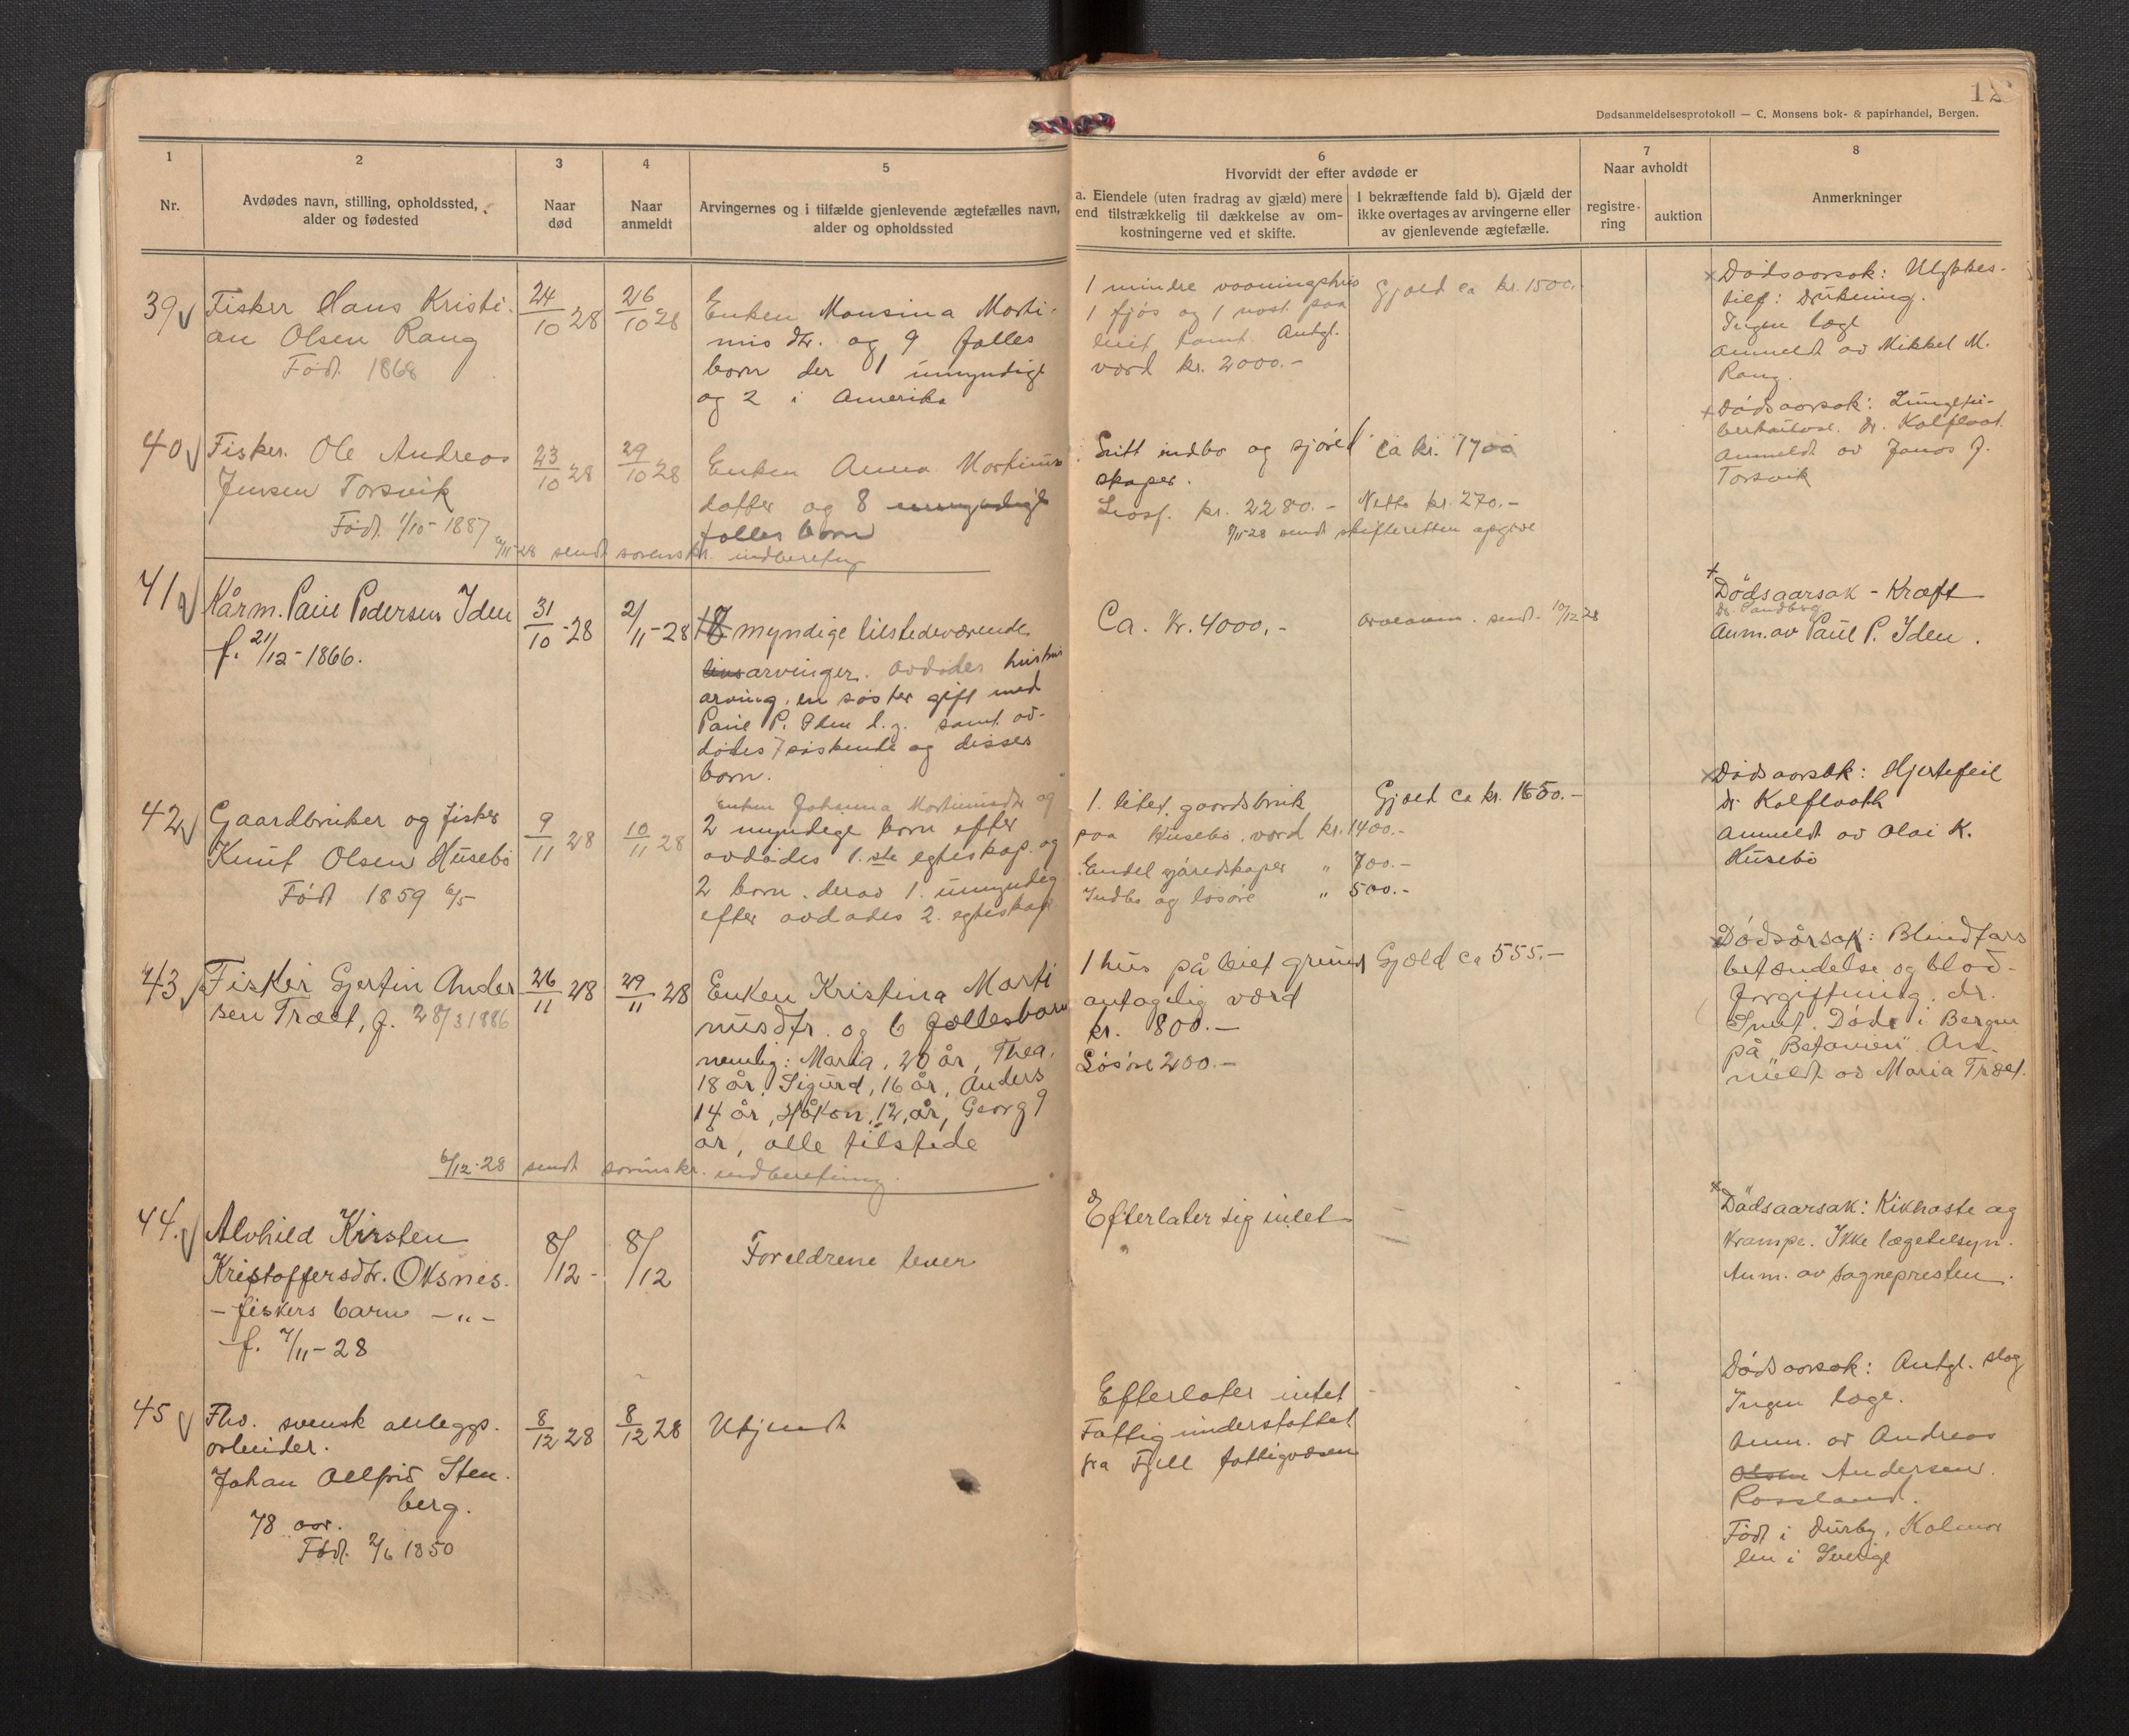 12
Dødsanmeldelsesprotokoll — C. Monsens bok- & papirhandel, Bergen.
1
2
3
4
5
Nr.
Avdødes navn, stilling, opholdssted,
alder og fødested
Naar
død
Naar
anmeldt
Arvingernes og i tilfælde gjenlevende ægtefælles navn,
alder og opholdssted
6
Hvorvidt der efter avdøde er
a. Eiendele (uten fradrag av gjæld) mere
end tilstrækkelig til dækkelse av om-
kostningerne ved et skifte.
I bekræftende fald b). Gjæld der
ikke overtages av arvingerne eller
av gjenlevende ægtefælle.
7
Naar avholdt
registre-
ring
auktion
8
Anmerkninger
39
Fisker Hans Kristi-
an Olsen Rang
Født 1868
24/10 28
26/10 28
Enken Monsina Morti-
nusdtr. og 9 fælles
born der 1 umyndig
og 2 i Amerika
1 mindre vaaningshus
1 fjøs og 1 nøst paa
leiet tomt. Antgl.
værd kr. 2000.-
Gjæld ca kr. 1500.-
Dødsaarsak: Ulykkes-
tilf: Drukning.
Ingen læge
anmeldt av Mikkel M.
Rang.
40
Fisker. Ole Andreas
Jensen Torsvik
Født 1/10-1887
23/10 28
29/10 28
Enken Anna Martinus
datter og 8 umyndige
fælles born
/11-28 sendt sorenskr. indberetng
Litt indbo og sjøred
skaper.
Løsø. kr. 2280.-
ca kr. 1700
Netto kr. 270.-
/11-28 sendt skifteretten opgave
Dødsaarsak: Lungetu-
berkulose. Dr. Kolflaat.
anmeldt av Jonas J.
Torsvik
41
Kårm. Paul Pedersen Iden
f. 21/12-1866.
31/10-28
2/11-28
myndige tilstedeværende
arvinger. avdødes hustrus
arving, en søster gift med
Paul P. Iden d.y. samt av-
dødes 7 søskende og disses
born.
Ca. Kr. 4000,-
arveanm. sendt 10/12 28
Dödsaarsak - Kræft
Dr. Sandberg
Anm. av Paul P. Iden.
42
Gaardbruker og fisker
Knut Olsen Husebö
Født 1859 6/5
9/11 28
10/11 28
Enken Johanna Martinusdtr og
2 myndige born efter
avdødes 1. ste egteskap. og
2 born. derav 1. umyndig
efter avdødes 2. egteskap
1. litet gaardsbruk
paa Husebö. værd kr. 1400.-
Endel sjøredskaper " 700.-
Indbo og løsøre " 500.-
Gjæld ca kr. 1650.-
Dødsaarsak: Hjertefeil
Dr Kolflaath
anmeldt av Olai K.
Husebö
43
Fisker Gjertin Ander
sen Træet, f. 28/3 1886
26/11 28
29/11 28
Enken Kristina Marti
nusdtr. og 6 fællesbarn
nemlig: Maria, 20 år, Thea,
18 år, Sigurd, 16 år, Anders
14 år, Håkon, 12 år, Georg 9
år, alle tilstede
6/12-28 sendt sorenskr. indberetning.
1 hus på leiet grund
antagelig værd
kr. 800.-
Løsøre 200.-
Gjæld ca 555.-
Dødsårsak: Blindtars
betændelse og blod-
forgiftning. dr.
Døde i Bergen
på "Betanien" An-
meldt av Maria Træet.
44.
Alvhild Kirsten
Kristoffersdtr. Oksnes.
- fiskers barn - " -
f. 7/11-28
8/12-
8/12
Foreldrene lever
Efterlater sig intet
Dödsaarsak: Kikhoste og
krampe. Ikke lægetilsyn.
Anm. av sognepresten.
45
Fhv. svensk anleggs-
arbeider.
Johan Alfrid Sten-
berg.
78 aar.
Født 2/6 1850
8/12 28
8/12 28
Ukjendt
Efterlater intet
Fattigunderstøttet
fra Fjell fattigvæsen
Dødsaarsak: Antgl. slag
Ingen læge.
Anm. av Andreas
Olsen Andersen
Rossland.
Født i Durby, Kalmar
len i Sverige